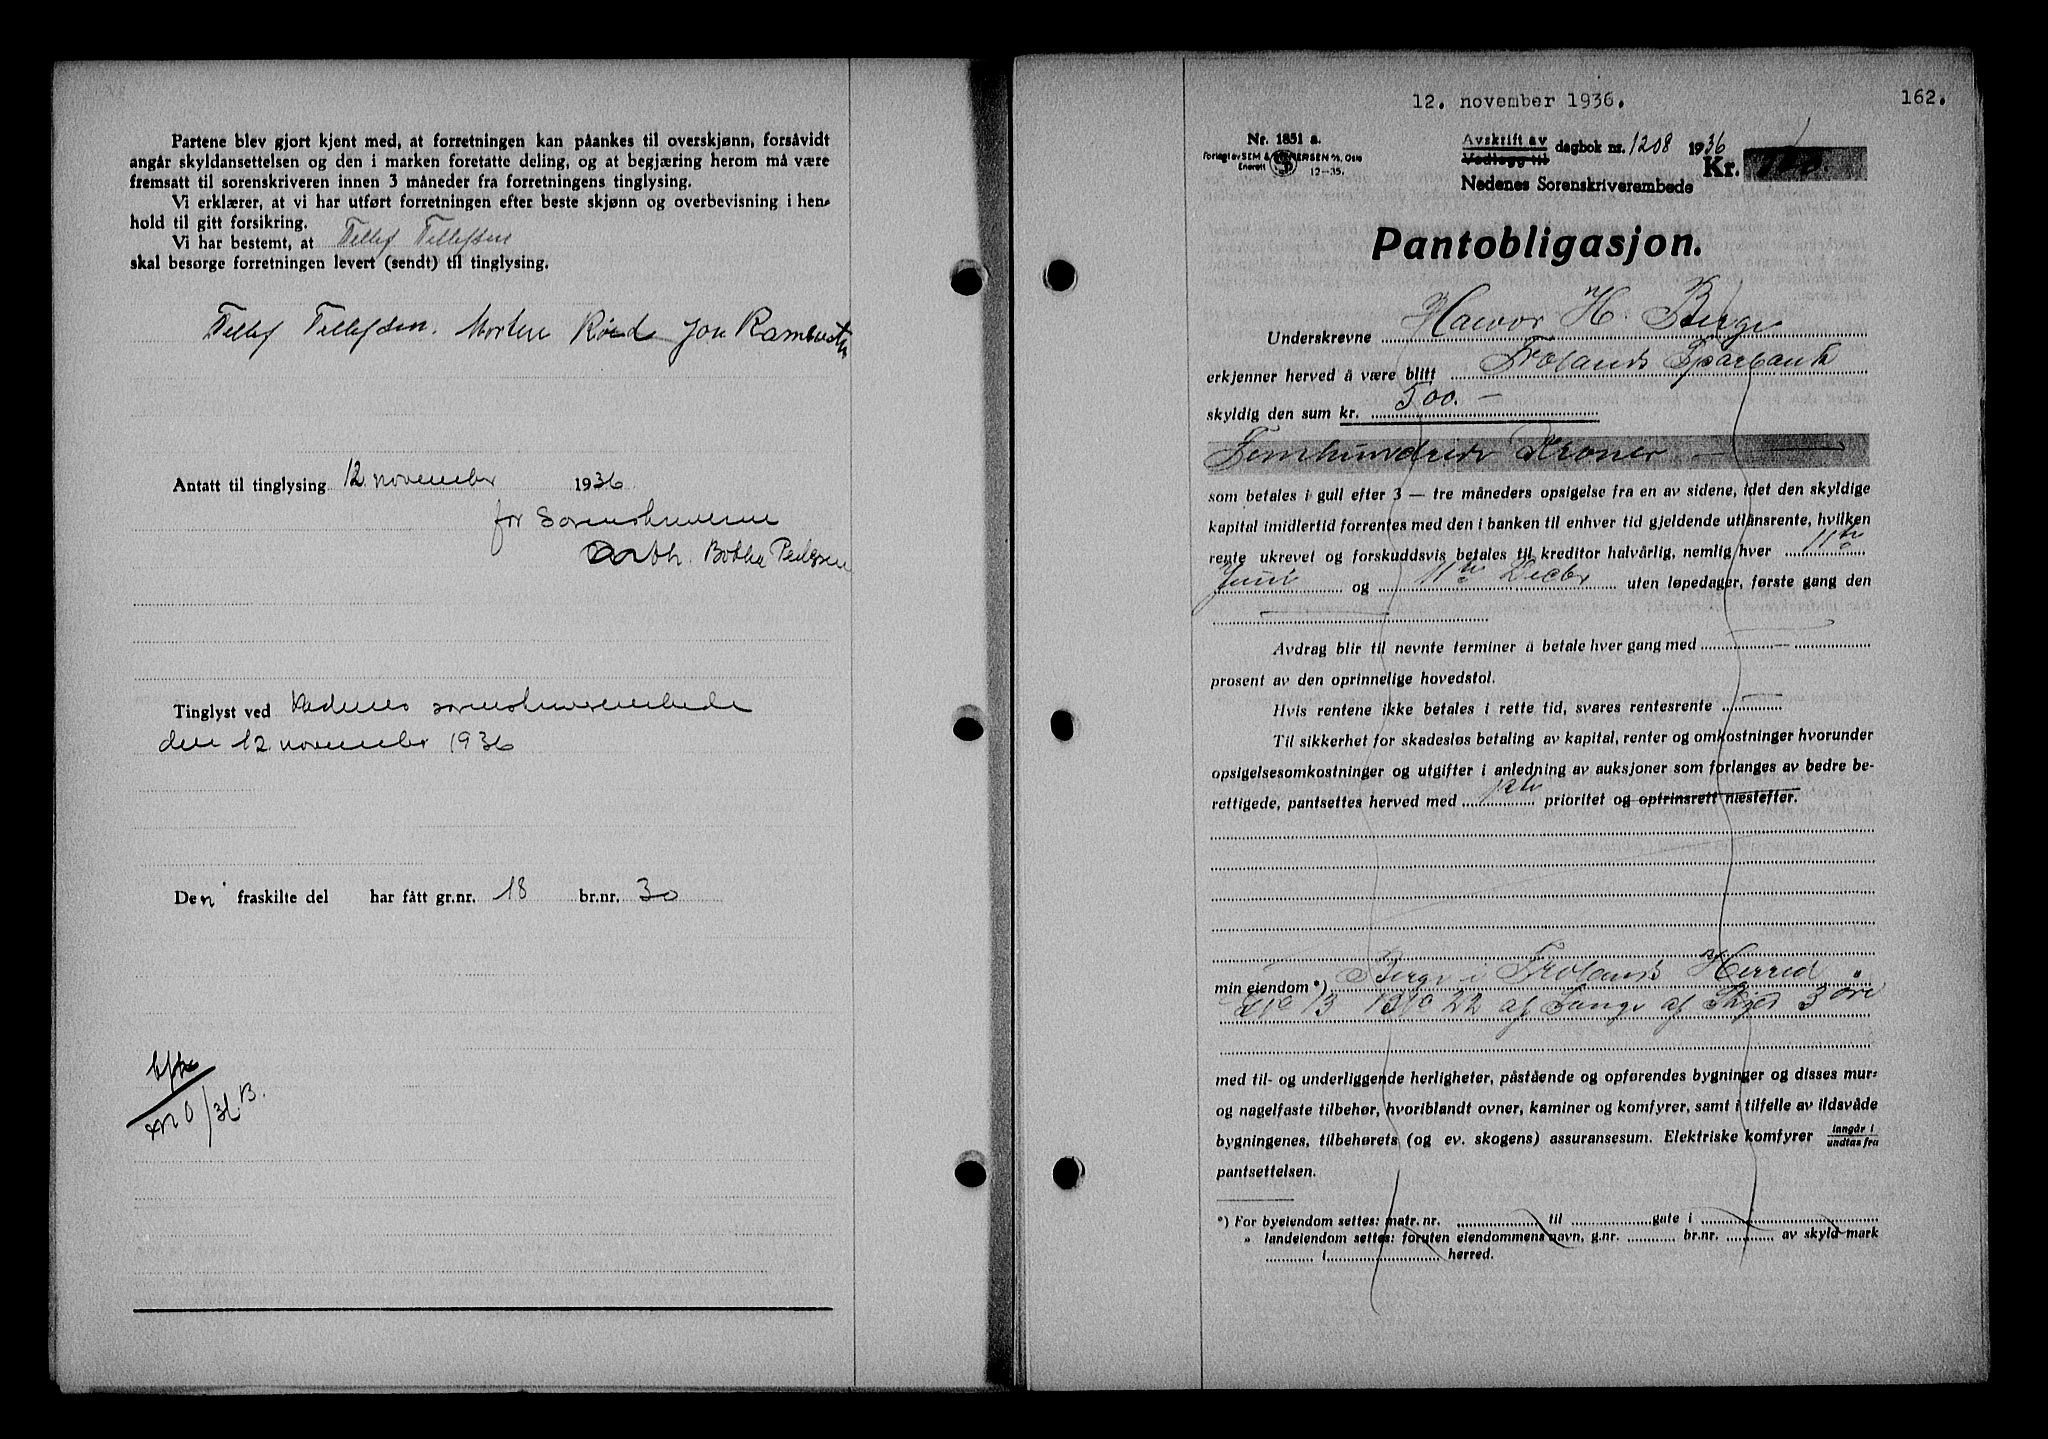 Partene blev gjort kjent med, at forretningen kan påankes til overskjønn, forsåvidt
angår skyldansettelsen og den i marken foretatte deling, og at begjæring herom må være
fremsatt til sorenskriveren innen 3 måneder fra forretningens tinglysing.
Vi erklærer, at vi har utført forretningen efter beste skjønn og overbevisning i hen-
hold til gitt forsikring.
Vi har bestemt, at Tellef Tellefsen
skal besørge forretningen levert (sendt) til tinglysing.
Tellef Tellefsen. Morten Jon
Antatt til tinglysing 12 november 1936
for Sorenskriveren
Botha Pedersen
Tinglyst ved Nedenes sorenskriverembede
den 12 november 1936
Den fraskilte del har fått gr.nr. 18 br.nr. 30
12. november 1936. 162.
Nr. 1851 a.
Avskrift av
Vedlegg til dagbok nr. 1208 1936
Enerett 12—35.
Nedenes Sorenskriverembede Kr.
Pantobligasjon.
Underskrevne H. Berge
erkjenner herved å være blitt Frolands Sparbank
skyldig den sum kr. 500.—
Femhundrede Kroner —
som betales i gull efter 3 — tre måneders opsigelse fra en av sidene, idet den skyldige
kapital imidlertid forrentes med den i banken til enhver tid gjeldende utlånsrente, hvilken
rente ukrevet og forskuddsvis betales til kreditor halvårlig, nemlig hver 11te
Juni og 11te Decbr uten løpedager, første gang den
Avdrag blir til nevnte terminer å betale hver gang med —
prosent av den oprinnelige hovedstol.
Hvis rentene ikke betales i rette tid, svares rentesrente
Til sikkerhet for skadesløs betaling av kapital, renter og omkostninger hvorunder
opsigelsesomkostninger og utgifter i anledning av auksjoner som forlanges av bedre be-
rettigede, pantsettes herved med prioritet og optrinsrett næstefter.
min eiendom *) Berge i Frolands Herred
13 22 af Skyld 3 øre
med til- og underliggende herligheter, påstående og opførendes bygninger og disses mur-
og nagelfaste tilbehør, hvoriblandt ovner, kaminer og komfyrer, samt i tilfelle av ildsvåde
bygningenes, tilbehørets (og ev. skogens) assuransesum. Elektriske komfyrer inngår i
undtas fra
pantsettelsen.
*) For byeiendom settes: matr. nr. til gate i
„ landeiendom settes: foruten eiendommens navn, g.nr. br.nr. av skyld mark
i herred.